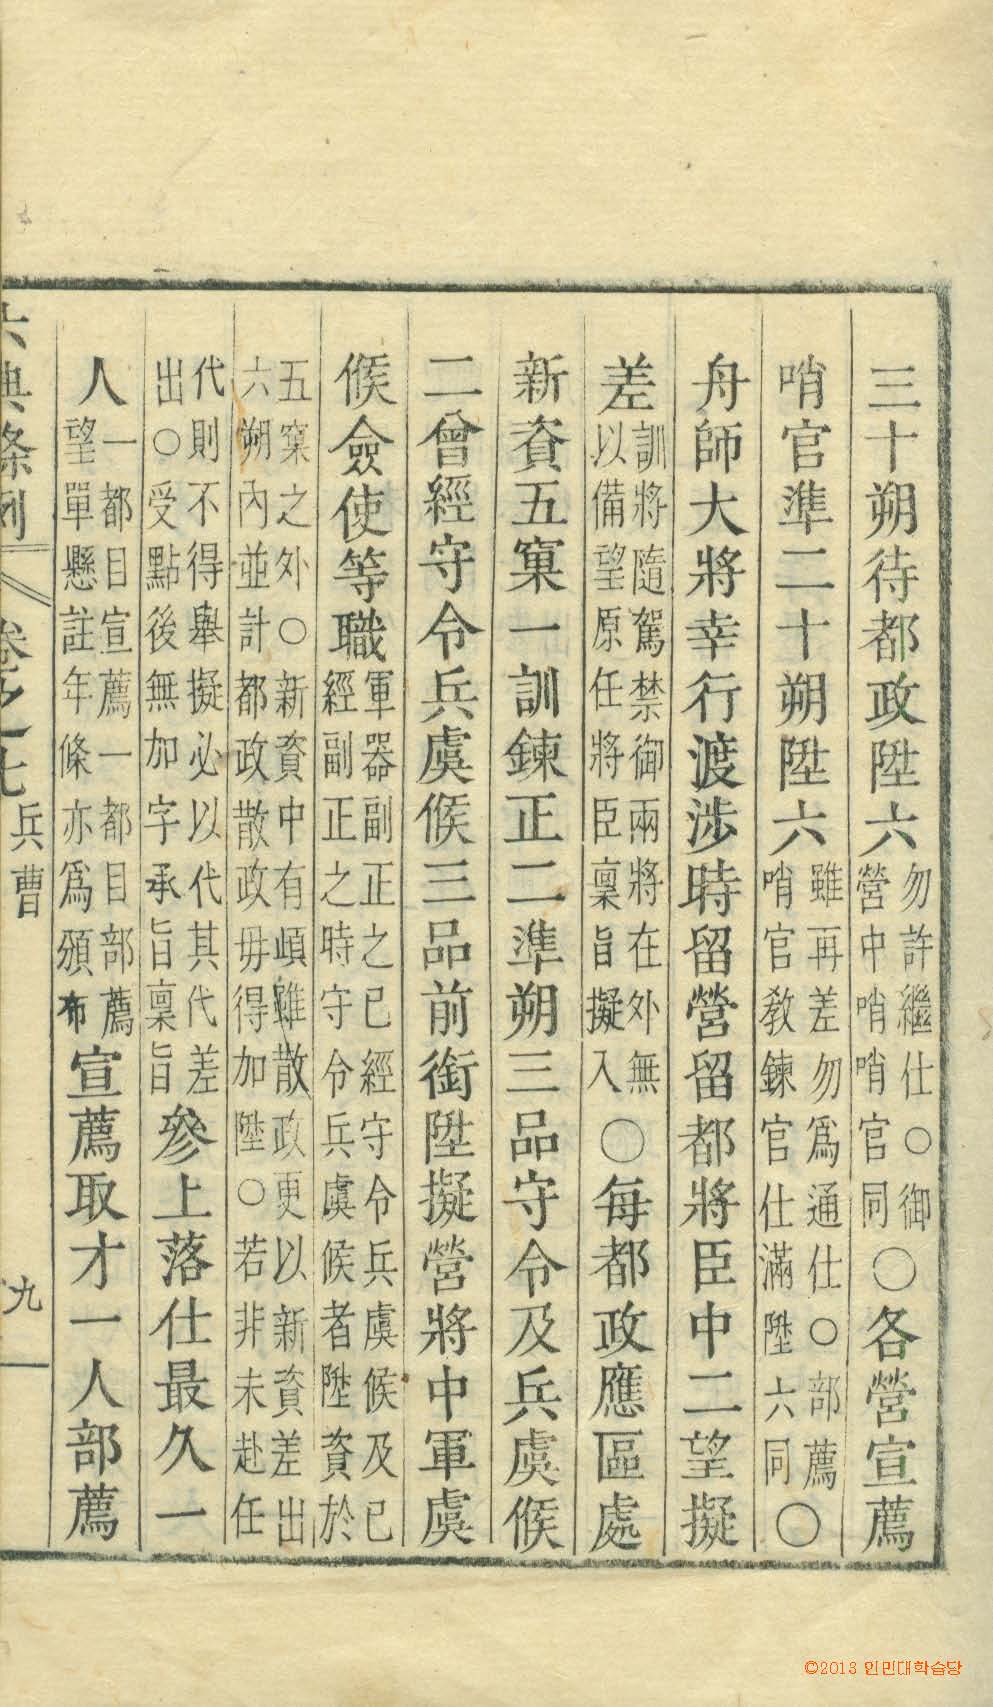 三十朔待都政陞六勿許繼仕○御營中哨哨官同○各營宣薦
哨官準二十朔陞六雖再差勿爲通仕○部薦哨官敎鍊官仕滿陞六同○
舟師大將幸行渡涉時留營留都將臣中二望擬
差訓將隨駕禁御兩將在外無以備望原任將臣稟旨擬入○每都政應區處
新資五窠一訓鍊正二準朔三品守令及兵虞候
二曾經守令兵虞候三品前銜陞擬營將中軍虞
候僉使等職軍器副正之已經守令兵虞候及已經副正之時守令兵虞候者陞資於
五窠之外○新資中有頉雖散政更以新資差出六朔內並計都政散政毋得加陞○若非未赴任
代則不得擧擬必以代其代差出○受點後無加字承旨稟旨參上落仕最久一
人一都目宣薦一都目部薦望單懸註年條亦爲頒布宣薦取才一人部薦
六典條例 卷之七 兵曹 九
©2013 인민대학습당